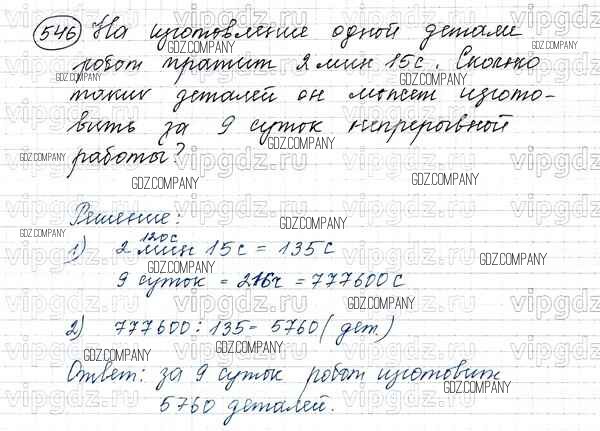 546 На изготовление одной детали
робот тратит 2 мин 15 с. Сколько
таких деталей он может изгото-
вить за 9 суток непрерывной
работы?
Решение:
120с
1) 2 мин 15с = 135с
9 суток = 216ч = 777600с
2) 777600 : 135 = 5760 (дет)
Ответ: за 9 суток робот изготовит
5760 деталей.